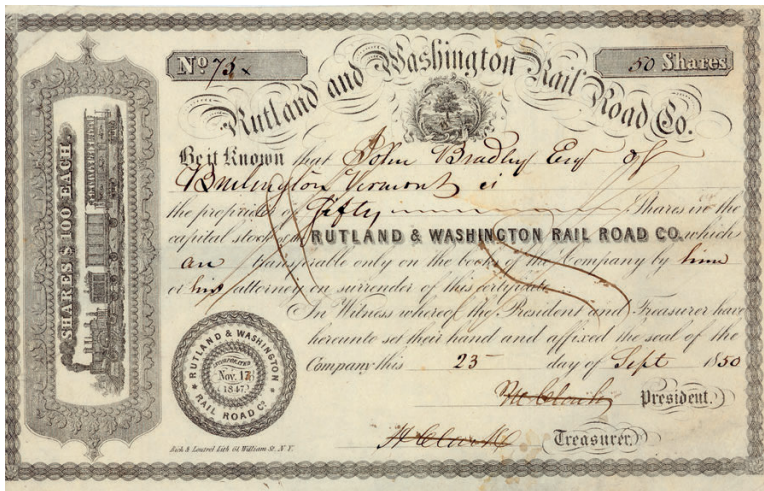 Nº 75
50 Shares
Rutland and Washington Rail Road Co.
SHARES $100 EACH
Be it Known that John Bradley Esqr of
Burlington Vermont is
the proprietor of Fifty Shares in the
capital stock of the RUTLAND & WASHINGTON RAIL ROAD CO. which
are transferable only on the books of the Company by him
or his attorney on surrender of this certificate.
In Witness whereof the President and Treasurer have
hereunto set their hand and affixed the seal of the
Company this 25 day of Sept 1850
President.
Treasurer.
RUTLAND & WASHINGTON
INCORPORATED
Nov. 13
1847
RAIL ROAD Co
William St. N.Y.